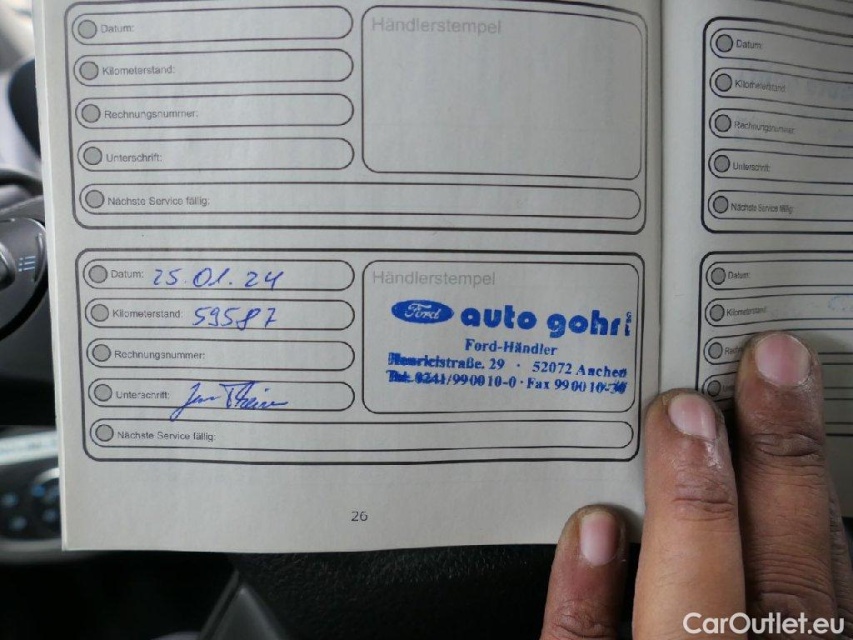 Datum:
Händlerstempel
Kilometerstand:
Rechnungsnummer:
Unterschrift:
Nächste Service fällig:
Datum: 25.01.24
Händlerstempel
Kilometerstand: 59587
Ford auto gohr
Ford-Händler
Rechnungsnummer:
Henricistraße. 29 · 52072 Aachen
Tel. 0241/990010-0 · Fax 990010-30
Unterschrift:
Nächste Service fällig:
26
Datum:
Kilometerstand:
Rechnungsnummer:
Unterschrift:
Nächste Service fällig:
Datum:
Kilometerstand:
CarOutlet.eu